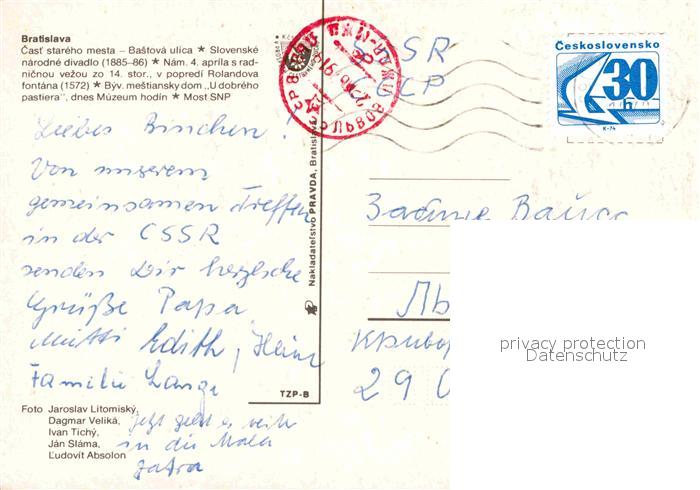 Bratislava
Časť starého mesta – Baštová ulica ★ Slovenské
národné divadlo (1885–86) ★ Nám. 4. apríla s rad-
ničnou vežou zo 14. stor., v popredí Rolandova
fontána (1572) ★ Býv. meštiansky dom „U dobrého
pastiera", dnes Múzeum hodín ★ Most SNP
Liebes Binchen!
Von unserem
gemeinsamen Treffen
in der CSSR
senden Dir herzliche
Grüße Papa
Mutti Edith, Heinz
Familie Lange
Jetzt geht es weiter
in die Hohe
Tatra
Foto Jaroslav Litomiský,
Dagmar Veliká,
Ivan Tichý,
Ján Sláma,
Ľudovít Absolon
TZP-B
Nakladateľstvo PRAVDA, Bratislava
Československo
30
h
K-74
СССР
Забине
Ль
Кривор
290
privacy protection
Datenschutz